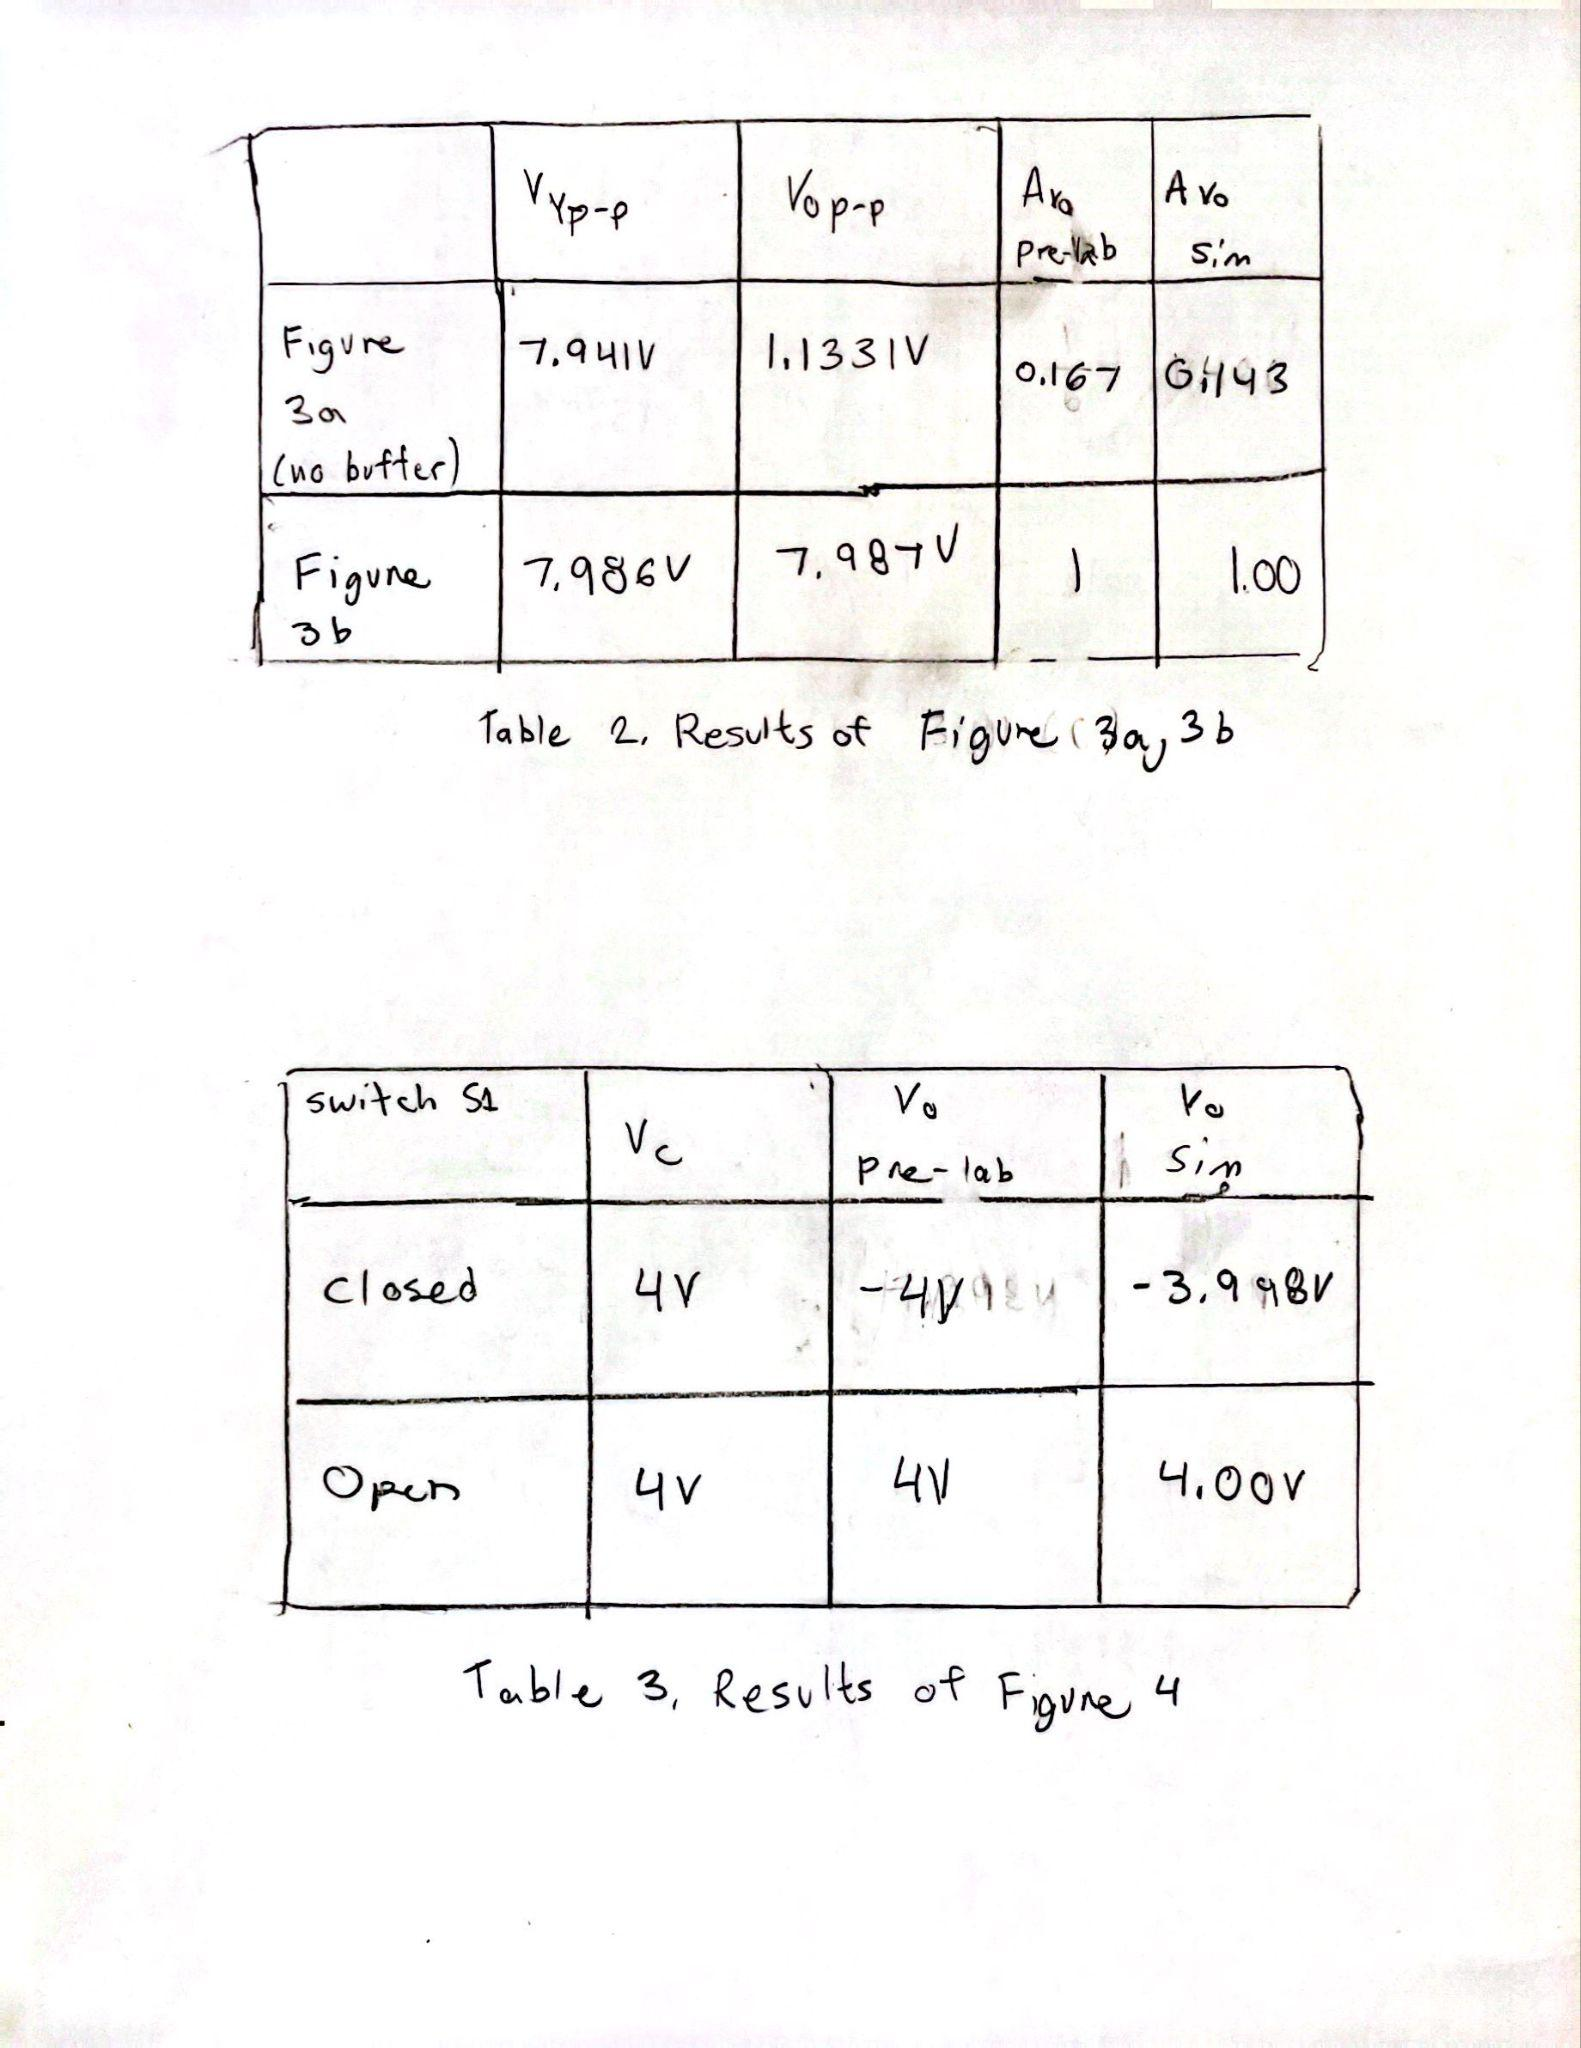 V Yp-p
Vo p-p
Avo
pre-lab
Avo
sim
Figure
3a
(no buffer)
7.941V
1.1331V
0.167
0.143
Figure
3b
7.986V
7.987V
1
1.00
Table 2. Results of Figure 3a, 3b
switch S1
Vc
Vo
pre-lab
Vo
sim
closed
4V
-4V
-3.998V
Open
4V
4V
4.00V
Table 3. Results of Figure 4